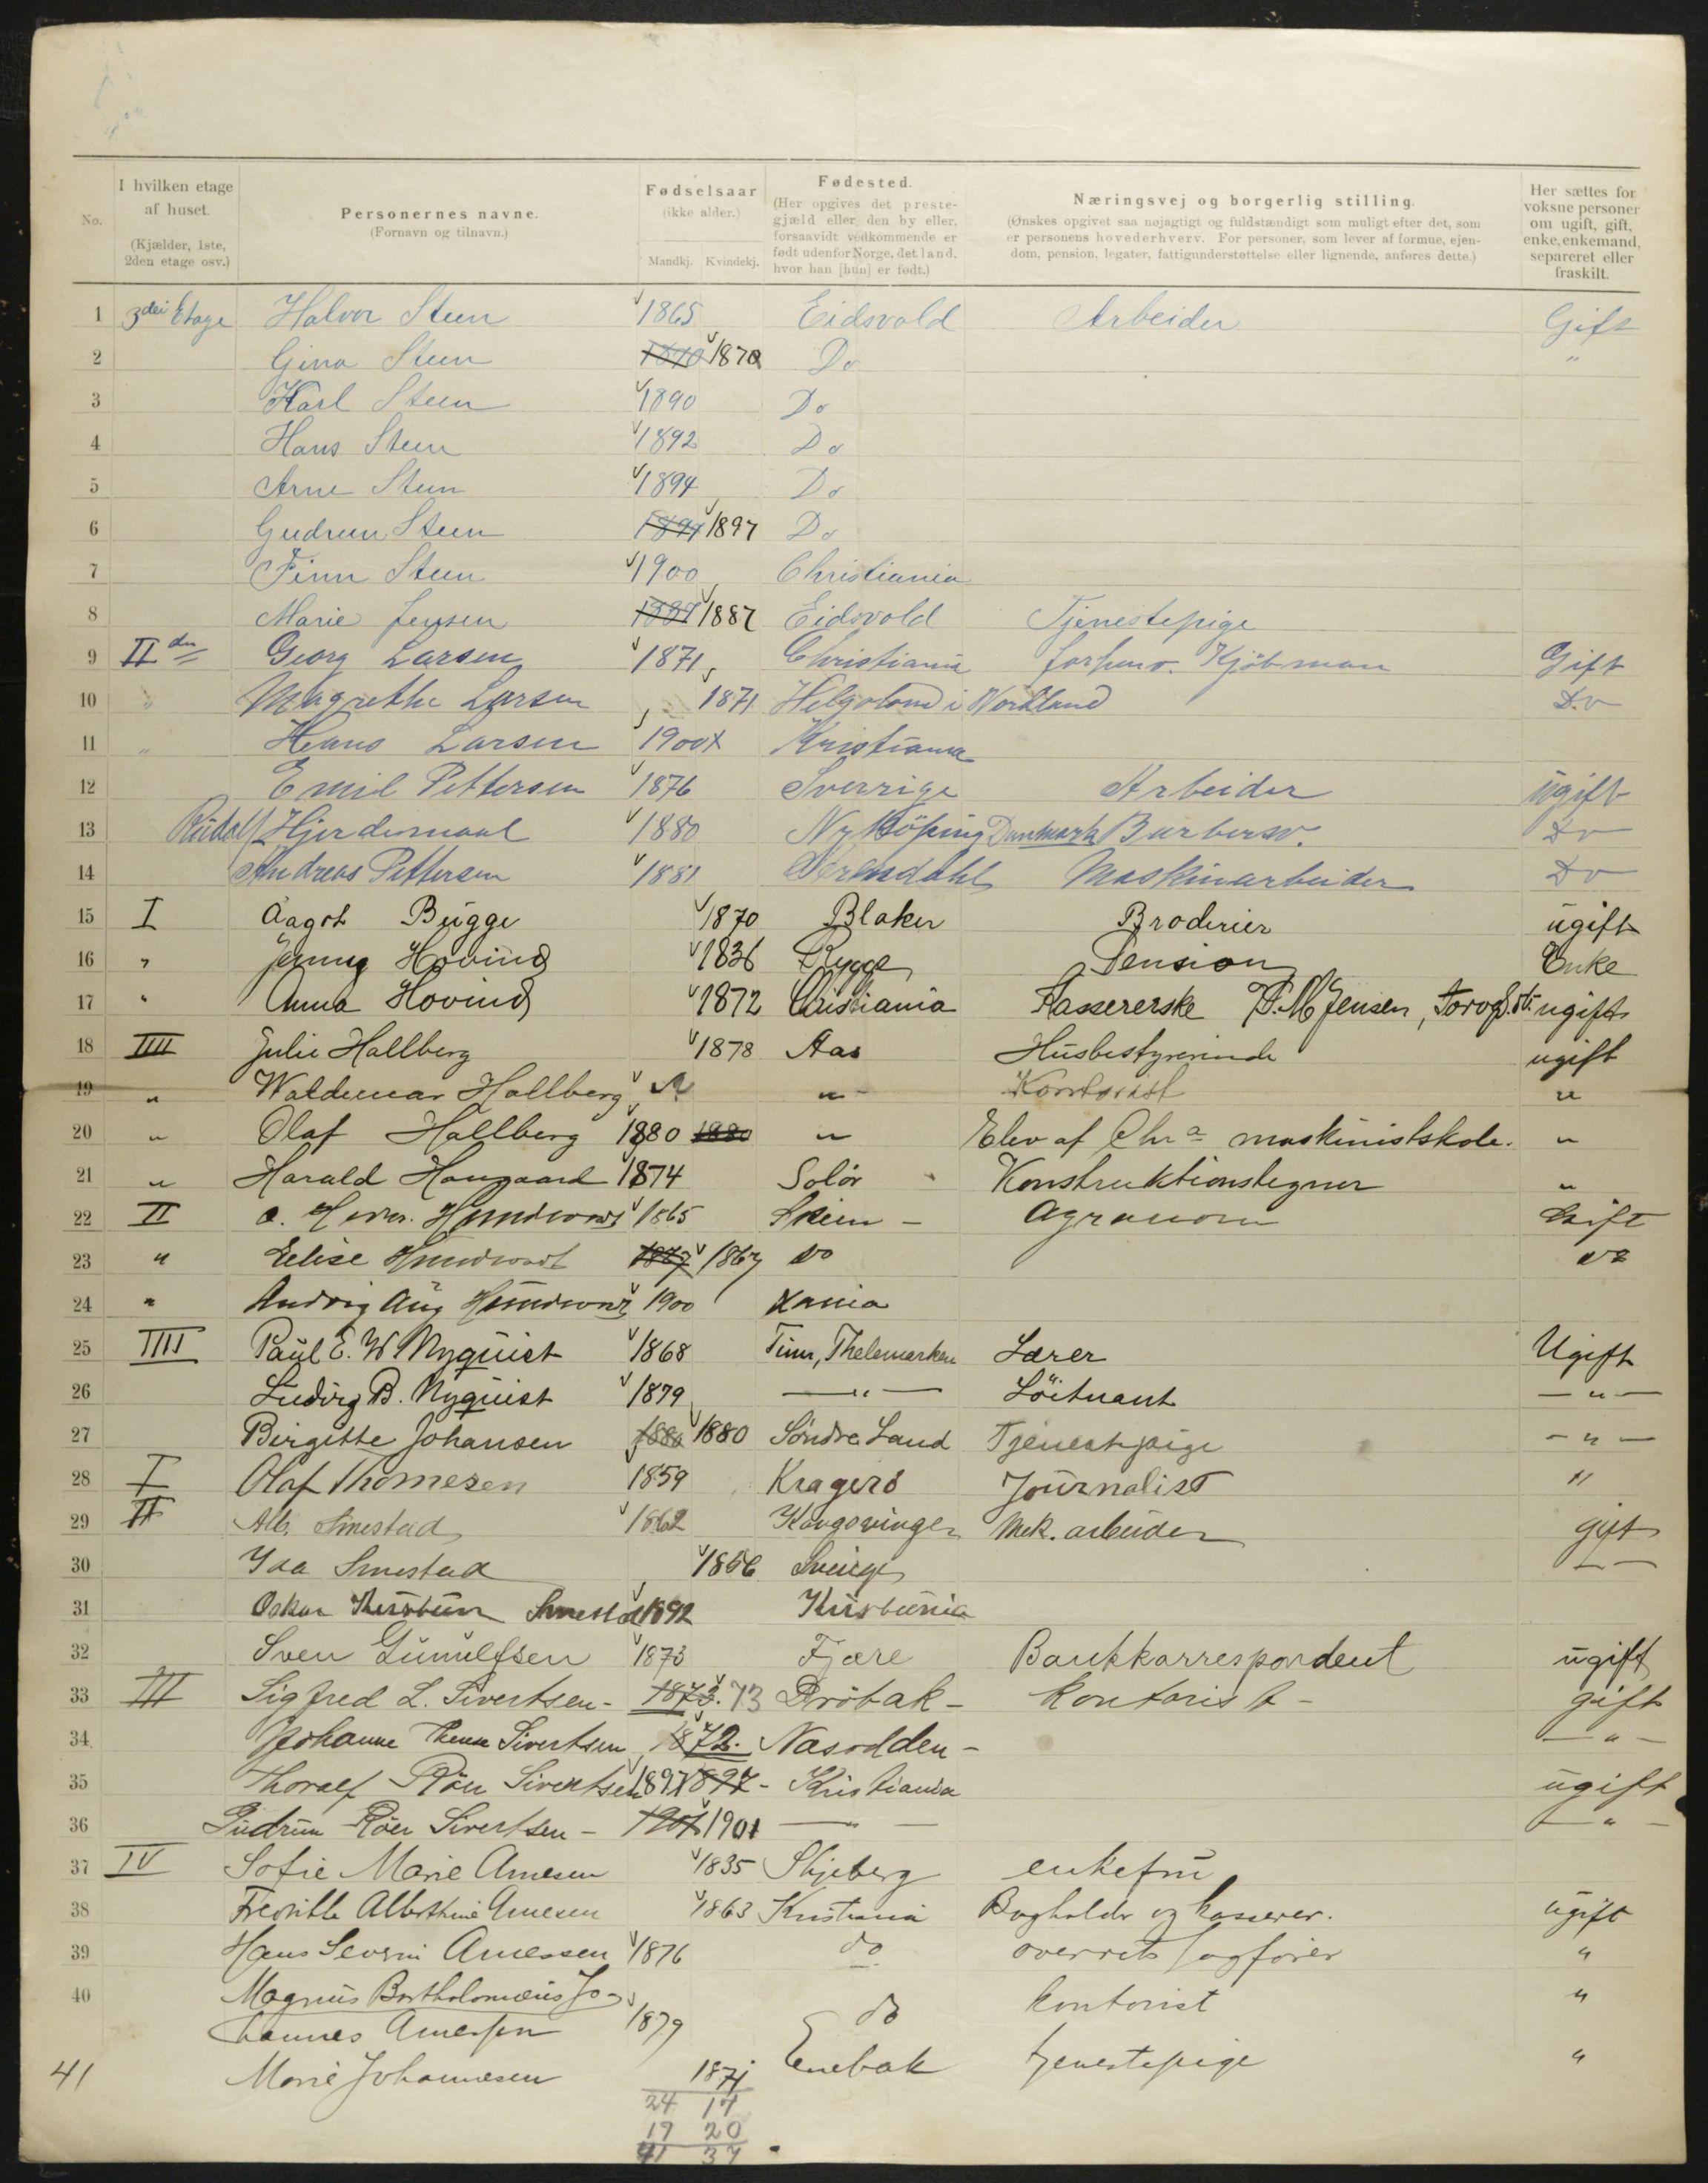 No.
I hvilken etage
af huset.
(Kjælder, 1ste,
2den etage osv.)
Personernes navne.
(Fornavn og tilnavn.)
Fødselsaar
(ikke alder.)
Mandkj. Kvindekj.
Fødested.
(Her opgives det preste-
gjæld eller den by eller,
forsaavidt vedkommende er
født udenfor Norge, det land,
hvor han [hun] er født.)
Næringsvej og borgerlig stilling.
(Ønskes opgivet saa nøjagtigt og fuldstændigt som muligt efter det, som
er personens hovederhverv. For personer, som lever af formue, ejen-
dom, pension, legater, fattigunderstøttelse eller lignende, anføres dette.)
Her sættes for
voksne personer
om ugift, gift,
enke, enkemand,
separeret eller
fraskilt.
1 3dei Etage Halvor Steen 1865 Eidsvold Arbeider Gift
2 Gina Steen 1870 1870 Do "
3 Karl Steen 1890 Do
4 Hans Steen 1892 Do
5 Arne Steen 1894 Do
6 Gudrun Steen 1897 1897 Do
7 Finn Steen 1900 Christiania
8 Marie Jensen 1887 1887 Eidsvold Tjenestepige
9 II den Georg Larsen 1871 Christiania forhenv. Kjöbman Gift
10 " Margrethe Larsen 1871 Helgoland i Nordland Do
11 " Hans Larsen 1900 Kristiania
12 Emil Pettersen 1876 Sverrige Arbeider ugift
13 Rudolf Hjerdemaal 1880 Nyköping Danmark Barbersv. Do
14 Andreas Pettersen 1881 Maskinarbeider Do
15 I Aagot Bugge 1870 Blaker Broderier ugift
16 " Jenny Hovind 1836 Rygge Pension Enke
17 " Anna Hovind 1872 Christiania Kassererske Jensen, ugift
18 IIII Julie Hallberg 1878 Aas Husbestyrerinde ugift
19 " Waldemar Hallberg " Kontorist "
20 " Olaf Hallberg 1880 1880 " Elev af Chra maskinistskole. "
21 " Harald Haugaard 1874 Solör Konstruktionstegner "
22 II 1865 Skien - Agronom Gift
23 " Elise 1867 1867 do do
24 " Ludvig Aug 1900 Kania
25 IIII Paul E. W Nyquist 1868 Tinn, Thelemarken Lærer Ugift
26 Ludvig B. Nyquist 1879 — " — Löitnant — " —
27 Birgitte Johansen 1880 1880 Söndre Land Tjenestepige — " —
28 I Olaf Thomesen 1859 Kragerö Journalist "
29 II Alb. Smestad 1862 Kongsvinger Mek. arbeider gift
30 Ida Smestad 1856 Sverige — —
31 Oskar Kristian Smestad 1892 Kristiania
32 Sven Gunulfsen 1873 Fjære Bankkorrespondent ugift
33 III Sigfred L. Sivertsen - 1873. 73 Dröbak - Kontorist - gift
34 Johanne Sivertsen 1872. Nasodden - — " —
35 Thoralf Röer Sivertsen 1897 1897 - Kristiania ugift
36 Gudrun Röer Sivertsen - 1901 1901 — " — — " —
37 IV Sofie Marie Arnesen 1835 Skjeberg enkefru
38 Fredrikke Albertine Arnesen 1863 Kristiania Bogholder og kasserer. ugift
39 Hans Severin Arnessen 1876 do overrets sagförer "
40 Magnus Bartholomæus Jo-
hannes Arnessen 1879 do kontorist "
41 Marie Johannesen 1871 Enebak tjenestepige "
24 17
17 20
41 37